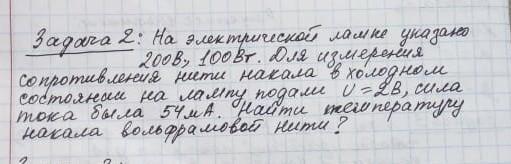 Задача 2: На электрической лампе указано
200В, 100Вт. Для измерения
сопротивления нити накала в холодном
состоянии на лампу подали U=2В, сила
тока была 54мА. Найти температуру
накала вольфрамовой нити?